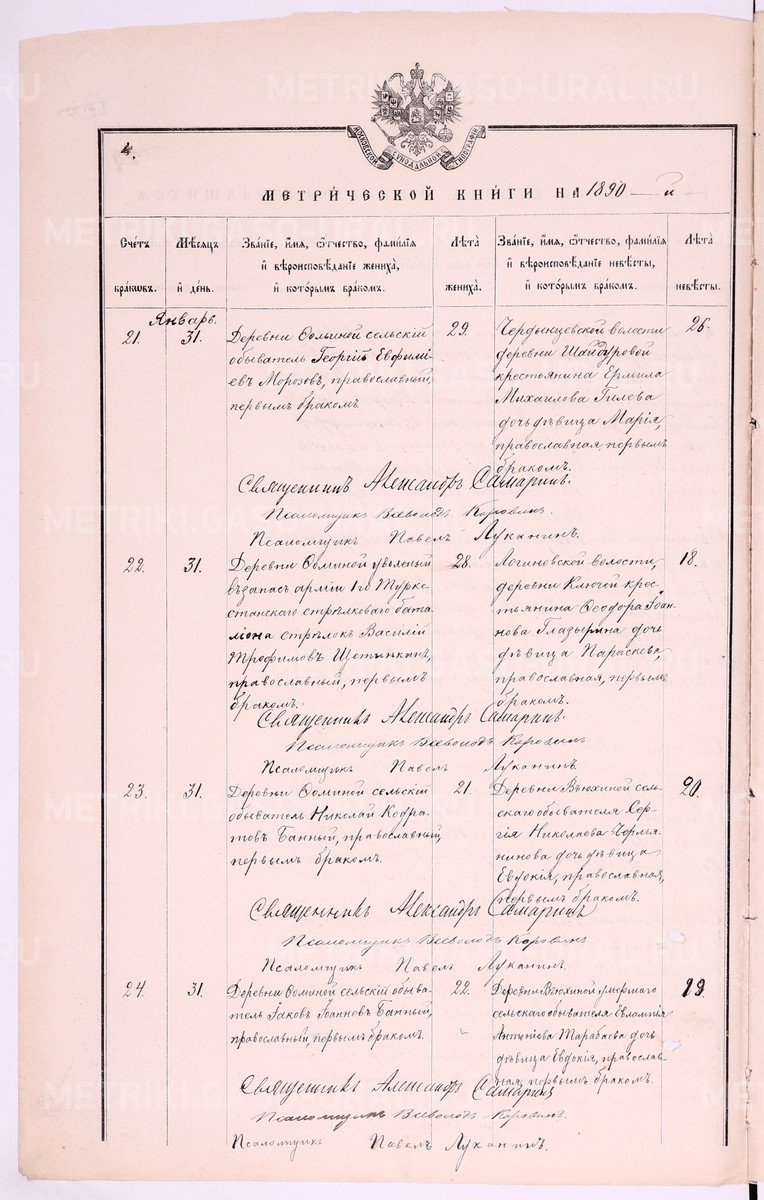 METRIKI.GASO-URAL.RU
4.
МОСКОВСКОЙ СѴНОДАЛЬНОЙ ТИПОГРАФІИ
МЕТРИ́ЧЕСКОЙ КНИ́ГИ НА 1890 — й
Сче́тъ бра́кѡвъ.
Мѣ́сяцъ и҆ де́нь.
Зва́нїе, и҆́мя, ѻ҆́тчество, фами́лїя
и҆ вѣроисповѣ́данїе жениха̀,
и҆ кото́рымъ бра́комъ.
Лѣ̑та жениха̀.
Зва́нїе, и҆́мя, ѻ҆́тчество, фами́лїя
и҆ вѣроисповѣ́данїе невѣ́сты,
и҆ кото́рымъ бра́комъ.
Лѣ̑та невѣ́сты.
Январь.
21.
31.
Деревни Ѳоминой сельскій
обыватель Георгій Евфимі-
евъ Морозовъ, православный,
первымъ бракомъ
29.
Чердынцевской волости
деревни Шайдуровой
крестьянина Ермила
Михаилова Гилева
дочь дѣвица Марія,
православная, первымъ
бракомъ.
26.
Священникъ Александръ Самаринъ.
Псаломщикъ Всеволодъ Коровинъ.
Псаломщикъ Павелъ Луканинъ.
22.
31.
Деревни Ѳоминой уволеный
въ запасъ арміи 1го Турке-
станскаго стрѣлковаго бата-
ліона стрѣлокъ Василій
Трофимовъ Щетинкинъ,
православный, первымъ
бракомъ.
28.
Логиновской волости,
деревни Ключей крес-
тьянина Ѳеодора Іоан-
нова Глазырина дочь
дѣвица Параскева,
православная, первымъ
бракомъ.
18.
Священникъ Александръ Самаринъ.
Псаломщикъ Всеволодъ Коровинъ
Псаломщикъ Павелъ Луканинъ
23.
31.
Деревни Ѳоминой сельскій
обыватель Николай Кодра-
товъ Банный, православный,
первымъ бракомъ.
21.
Деревни Вьюхиной сель-
скаго обывателя Сер-
гія Николаова Чермя-
нинова дочь дѣвица
Евдокія, православная,
первымъ бракомъ.
20.
Священникъ Александръ Самаринъ
Псаломщикъ Всеволодъ Коровинъ
Псаломщикъ Павелъ Луканинъ.
24.
31.
Деревни Ѳоминой сельскій обыва-
тель Іаковъ Іоанновъ Банный,
православный, первымъ бракомъ.
22.
Деревни Вьюхиной умершаго
сельскаго обывателя Евлампія
Антоніева Тарабаева дочь
дѣвица Евдокія, православ-
ная, первымъ бракомъ.
19.
Священникъ Александръ Самаринъ
Псаломщикъ Всеволодъ Коровинъ.
Псаломщикъ Павелъ Луканинъ.